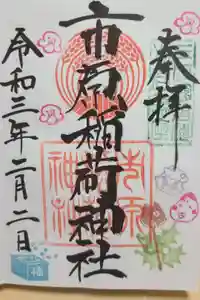 奉拝
市原稲荷神社
令和三年二月二日
福